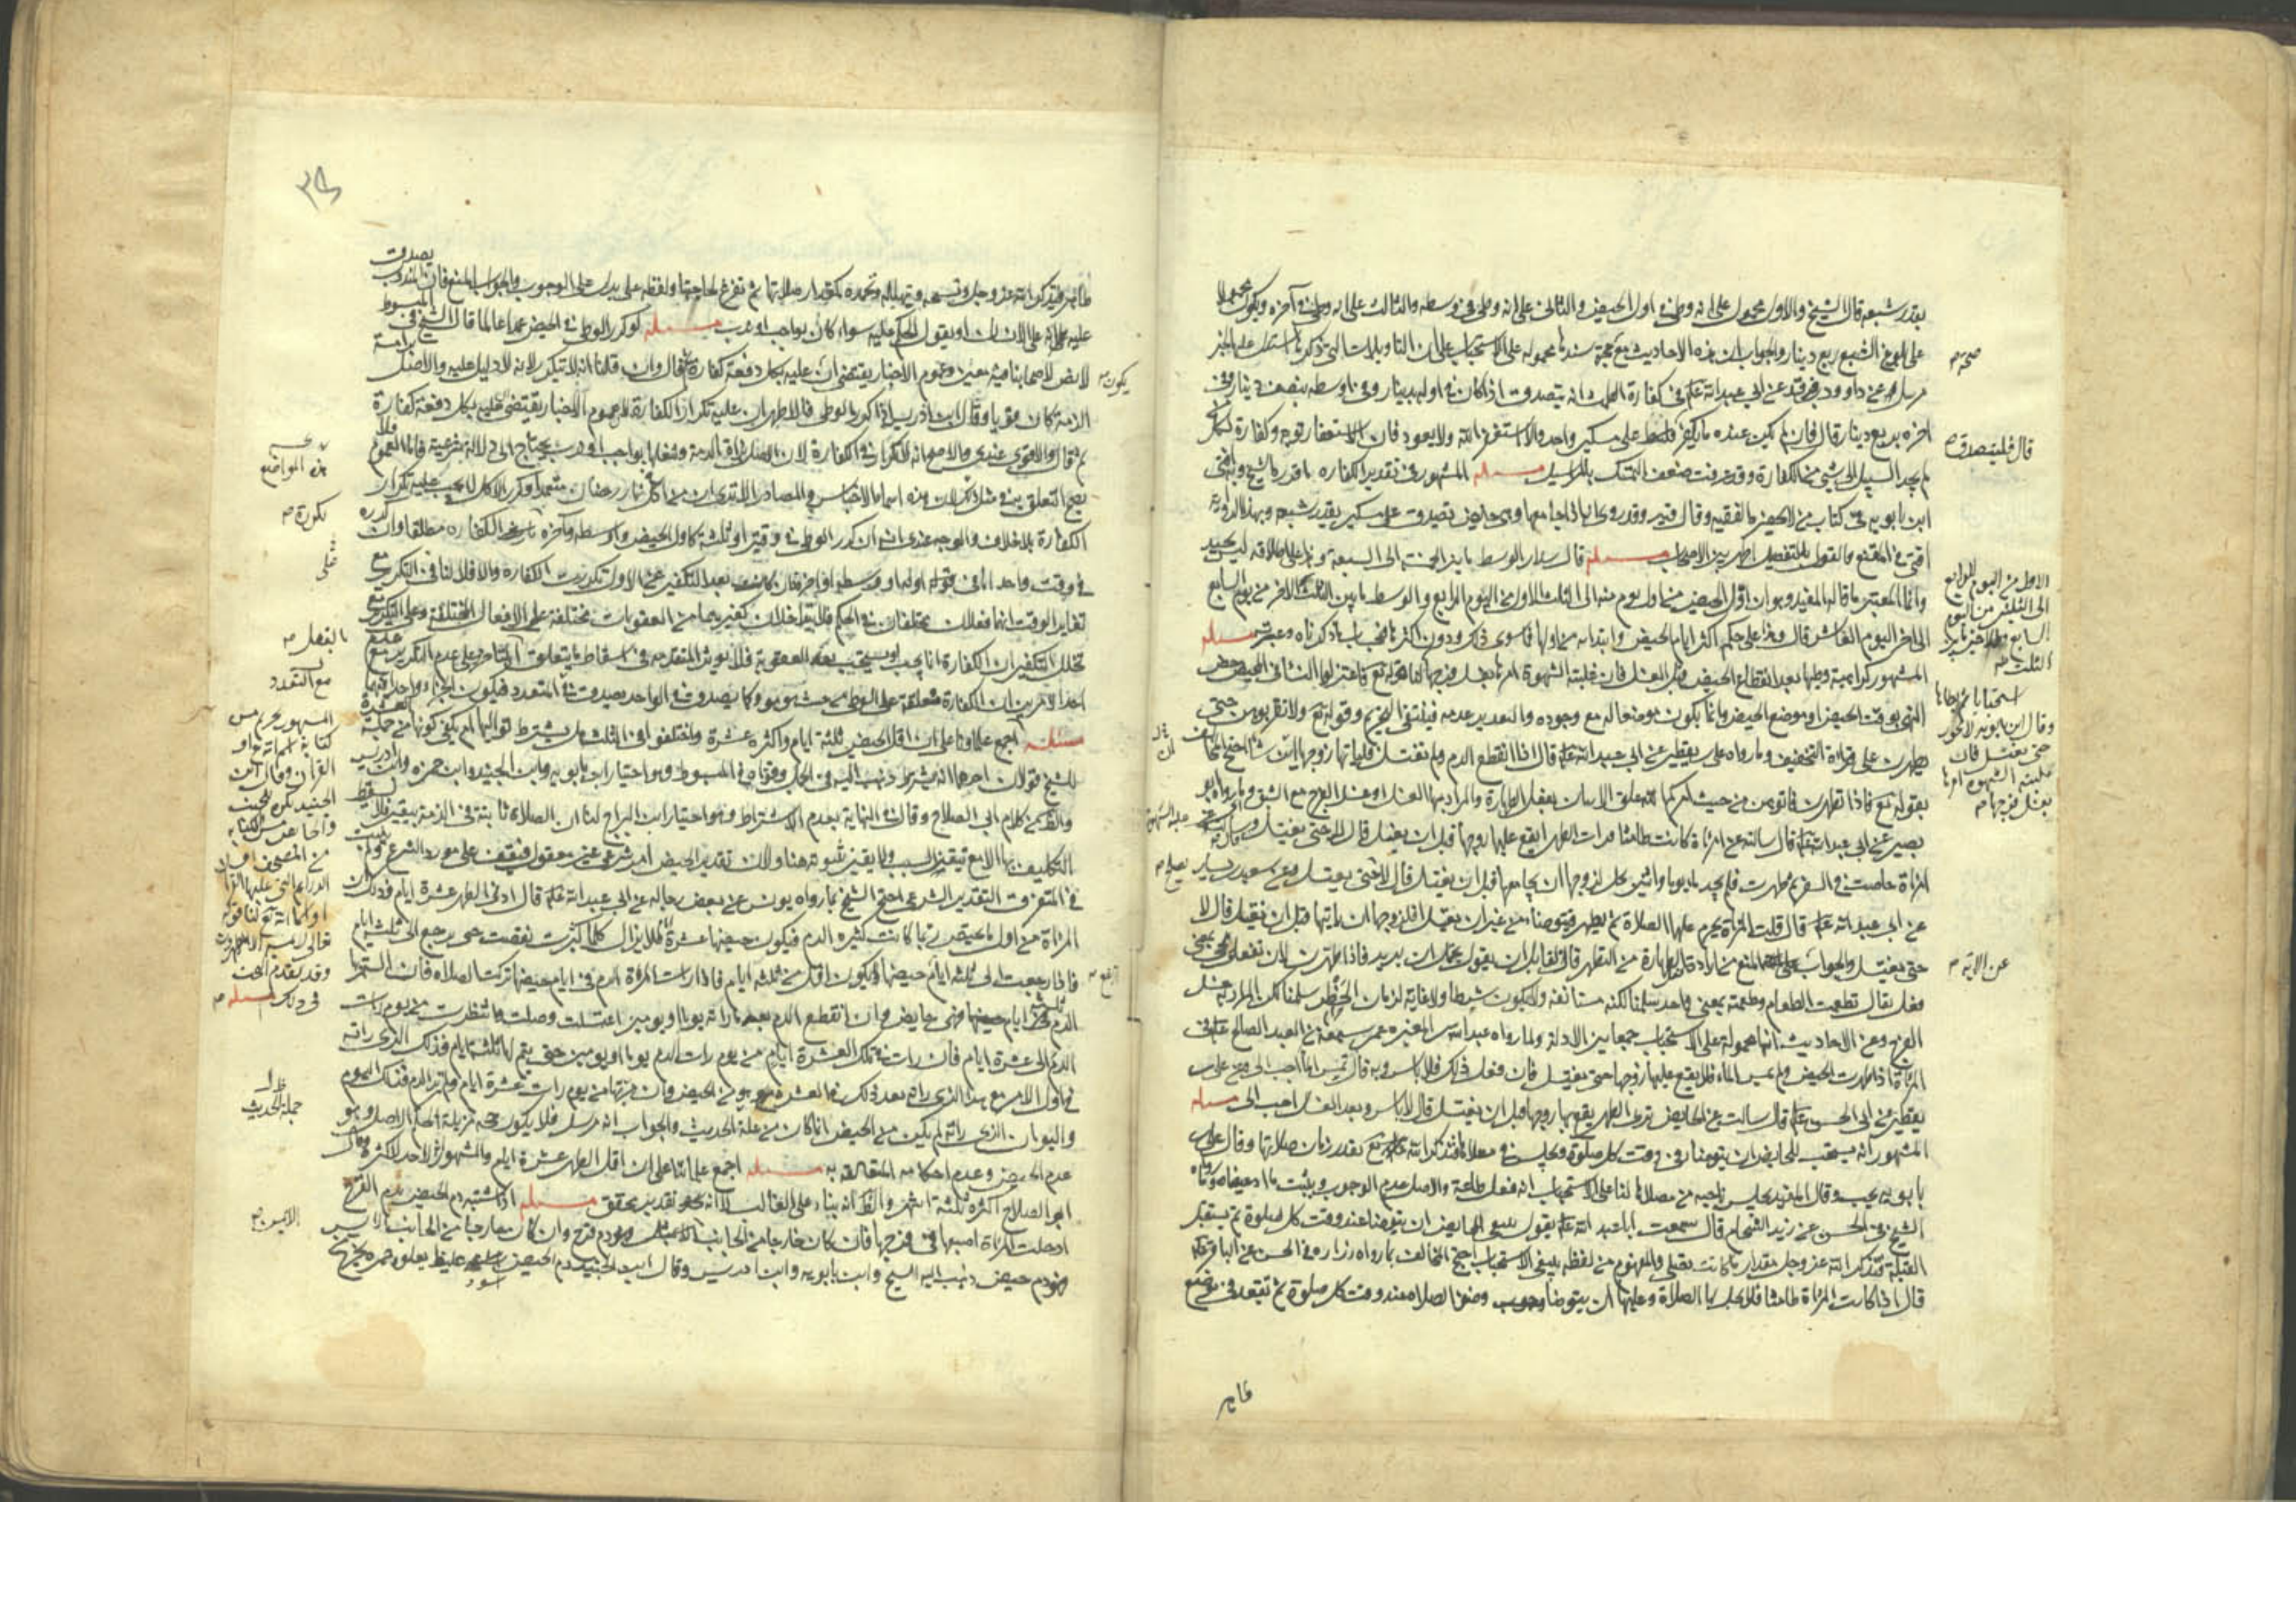 بقدر شبعه قال الشيخ والاول محمول على انه وطئ في اول الحيض والثاني على انه وطئ في وسطه والثالث على انه وطئ في آخره ويكون محمولا
على بلوغ الشبع ربع دينار والجواب ان هذه الاحاديث مع صحة سندها محمولة على الاستحباب على ان التاويلات التي ذكرها اشتمل عليه الخبر
مرسلا عن داوود بن فرقد عن ابي عبد الله ع في كفارة الطمث انه يتصدق اذا كان في اوله بدينار وفي اوسطه بنصف دينار وفي
اخره بربع دينار قال فان لم يكن عنده ما يكفر على مسكين واحد والا استغفر الله ولا يعود فان الاستغفار توبة وكفارة لكل من
لم يجد السبيل الى شيء من الكفارة وقد عرفت ضعف التمسك بالمراسيل مسئله المشهور في تقدير الكفاره ما قدر به الشيخ
ابن بابويه في كتاب من لا يحضره الفقيه وقال فيه وقد روي انه اذا جامعها وهي حايض تصدق على مسكين بقدر شبعه وبهذا الرواية
افتى في المقنع والقول بالتفصيل اظهر بين الاصحاب مسئله قال سلار الوسط ما بين الخمسة الى السبعة
وانما المعتبر ما قاله المفيد وهو ان اول الحيض من اول يوم منه الى الثلث الاول من اليوم الرابع والوسط ما بين الثلث الآخر من يوم السابع
الى آخر اليوم العاشر قال وهذا على حكم اكثر ايام الحيض مسئله
المشهور كراهية وطيها بعد انقطاع الحيض قبل الغسل فان غلبته الشهوة امرها بغسل فرجها لنا قوله تع فاعتزلوا النساء في المحيض
النهي بوقت الحيض او موضع الحيض وانما يكون موضعا له مع وجوده والتقدير عدمه فينتفي التحريم وقوله تع ولا تقربوهن حتى
يطهرن على قراءة التخفيف وما رواه علي بن يقطين عن ابي عبد الله ع قال اذا انقطع الدم ولم تغتسل فلياتها زوجها ان شاء احتج المخالف
بقوله تع فاذا تطهرن فاتوهن من حيث امركم الله علق الاتيان بفعل الطهارة والمراد بها الغسل او غسل الفرج مع الشبق وما رواه ابو
بصير عن ابي عبد الله ع قال سالته عن امراة كانت طامثا فرات الطهر ايقع عليها زوجها قبل ان يغتسل قال لا حتى يغتسل وسالته عن
امراة حاضت في السفر ثم طهرت فلم تجد ماء يوما واثنين يحل لزوجها ان يجامعها قبل ان يغتسل قال لا حتى يغتسل وعن سعيد بن يسار
عن ابي عبد الله ع قال قلت المراة يحرم عليها الصلاة ثم يطهر فيتوضا من غير ان يغتسل افلزوجها ان ياتيها قبل ان يغتسل قال لا
حتى يغتسل والجواب المنع من
فعل يقال تطعمت الطعام وطعمته بمعنى واحد سلمنا لكنه مستانفة ولا يكون شرطا ولا غاية لزمان الحظر سلمنا لكن المراد به غسل
الفرج وعن الاحاديث انها محمولة على الاستحباب جمعا بين الادلة ولما رواه عبد الله بن المغيره عمن سمعه من العبد الصالح ع في
المراة اذا طهرت من الحيض ولم تمس الماء فلا يقع عليها زوجها حتى يغتسل فان فعل ذلك فلا باس به وقال تمس الماء احب الي وعن علي بن
يقطين عن ابي الحسن ع قال سالت عن الحايض ترى الطهر يقع بها زوجها قبل ان يغتسل قال لا باس وبعد الغسل احب الي مسئله
المشهور انه يستحب للحايض ان يتوضا في وقت كل صلوة ويجلس في مصلاها فتذكر الله تع بقدر زمان صلاتها وقال علي بن
بابويه يجب وقال المفيد يجلس ناحية من مصلاها لنا على الاستحباب انه فعل طاعة والاصل عدم الوجوب
الشيخ في الحسن عن زيد الشحام قال سمعت ابا عبد الله ع يقول ينبغي للحايض ان يتوضا عند وقت كل صلوة ثم يستقبل
القبلة فتذكر الله عز وجل بمقدار ما كانت يصلي والمفهوم من لفظه ينبغي الاستحباب احتج المخالف بما رواه زراره في الحسن عن الباقر ع
قال اذا كانت المراة طامثا فلا يحل لها الصلاة وعليها ان يتوضا وضوء الصلاه عند وقت كل صلوة ثم تقعد في موضع
طاهر
صح
قال فليتصدق
الاول من اليوم الرابع
الى الثلثين من اليوم
السابع
الثلث
وقال ابن بابويه لا يجوز
حتى يغتسل فان
غلبته الشهوه امرها
بغسل فرجها
عن الآية
٣٥
طاهر فتذكر الله عز وجل وتسبحه وتهلله وتحمده كمقدار صلاتها ثم تفرغ لحاجتها ولفظة على يدل على الوجوب والجواب المنع فان المندوب يصدق
عليه انه على الانسان او يقول الحكم عليه سواء كان بواجب او ندب مسئله لو كرر الوطئ في الحيض عمدا عالما قال الشيخ في المبسوط
لا نص لاصحابنا فيه معين وعموم الاخبار يقتضي ان عليه بكل دفعة كفارة قال وان قلنا انه لا تتكرر لانه لا دليل عليه والاصل براءة
الذمة كان قويا وقال ابن ادريس اذا كرر الوطئ فالاظهر ان عليه تكرار الكفارة لان عموم الاخبار يقتضي عليه بكل دفعة كفارة
ثم قال والاقوى عندي والاصح انه لا تكرار في الكفارة لان الاصل براءة الذمة وشغلها بواجب او ندب يحتاج الى دلالة شرعية فاما العموم فلا
يصح التعلق به في مثل ذلك لان هذه اسماء الاجناس والمصادر الا ترى ان من اكل في نهار رمضان متعمدا وكرر الاكل لا يجب عليه تكرار
الكفارة بلا خلاف والوجه عندي انه ان كرر الوطئ في وقتين او ثلثة كاول الحيض واوسطه وآخره تكررت الكفاره مطلقا وان كرره
في وقت واحد اما في اوله او وسطه او آخره فان كان بعد التكفير عن الاول تكررت الكفارة والا فلا لنا في التكرر مع
تغاير الوقت انهما فعلان مختلفان في الحكم فلا يتداخلان كغيرهما من العقوبات مختلفة على الافعال المختلفة وعلى التكرر مع
تخلل التكفير ان الكفارة انما يجب او يستحب بعد العقوبة فلا يؤثر المتقدمه في اسقاط ما يتعلق بالمتاخر وعلى عدم التكرر مع عدم
احد الامرين ان الكفارة متعلقة على الوطئ من حيث هو هو وكما يصدق في الواحد يصدق في المتعدد فيكون الجزاء واحدا فيهما
مسئله اجمع علماؤنا على ان اقل الحيض ثلثة ايام واكثره عشرة واختلفوا في الثلثة هل يشترط تواليها ام يكفي كونها من جملة العشرة
للشيخ قولان احدهما انه يشترط ذهب اليه في الجمل وقواه في المبسوط وهو اختيار ابن بابويه وابن الجنيد وابن حمزه وابن ادريس
والظاهر من كلام ابي الصلاح وقال في النهاية بعدم الاشتراط وهو اختيار ابن البراج لنا ان الصلاة ثابتة في الذمة بيقين فلا يسقط
التكليف بها الا مع تيقن السبب ولا يقين بثبوته هنا ولان تقدير الحيض امر شرعي غير معقول فيقف على مورد الشرع ولم يثبت
في المتفرق التقدير الشرعي احتج الشيخ بما رواه يونس عن بعض رجاله عن ابي عبد الله ع قال ادنى الطهر عشرة ايام وذلك ان
المراة من اول ما تحيض ربما كانت كثيره الدم فيكون حيضها عشرة ايام فلا يزال كلما كبرت نقصت حتى يرجع الى ثلثة ايام
فاذا رجعت الى ثلثة ايام حيضها ولا يكون اقل من ثلثه ايام فاذا رات المراة الدم في ايام حيضها تركت الصلاه فان استمر بها
الدم ثلثة ايام فهي حايض وان انقطع الدم بعد ما راته يوما او يومين اغتسلت وصلت وانتظرت من يوم رات
الدم الى عشرة ايام فان رات في تلك العشرة ايام من يوم رات الدم يوما او يومين حتى يتم لها ثلثة ايام فذلك الذي راته
في اول الامر مع هذا الذي راته بعد ذلك في العشرة هو من الحيض وان مر بها من يوم رات عشرة ايام ولم تر الدم فذلك اليوم
واليومان الذي راته لم يكن من الحيض انما كان من علة الحديث والجواب انه مرسل فلا يكون حجة مزيلة لحكم الاصل وهو
عدم الحيض وعدم احكامه المتعلقة به مسئله اجمع علمائنا على ان اقل الطهر عشرة ايام والمشهور ان لا حد لاكثره وقال
ابو الصلاح اكثره ثلثة اشهر والظاهر انه بناء على الغالب لا انه تقدير محقق مسئله اذا اشتبه دم الحيض بدم القرح
ادخلت المراة اصبعها في فرجها فان كان خارجا من الجانب فهو دم قرح وان كان خارجا من الجانب الايسر
فهو دم حيض ذهب اليه الشيخ وابن بابويه وابن ادريس وقال ابن الجنيد دم الحيض اسود غليظ يعلوه حمرة يخرج
يكون
هذه المواضع
على
الفصل
مع التعدد
المشهور تحريم مس
كتابة اسم الله تع او
القران وقال ابن
الجنيد يكره للجنب
والحايض مس الكتابه
من المصحف
الدراهم التي عليها القرآن
او اسم الله تع لنا قوله
تعالى لا يمسه الا المطهرون
وقد تقدم البحث
في ذلك مسئله
جملة الحديث
الايمن